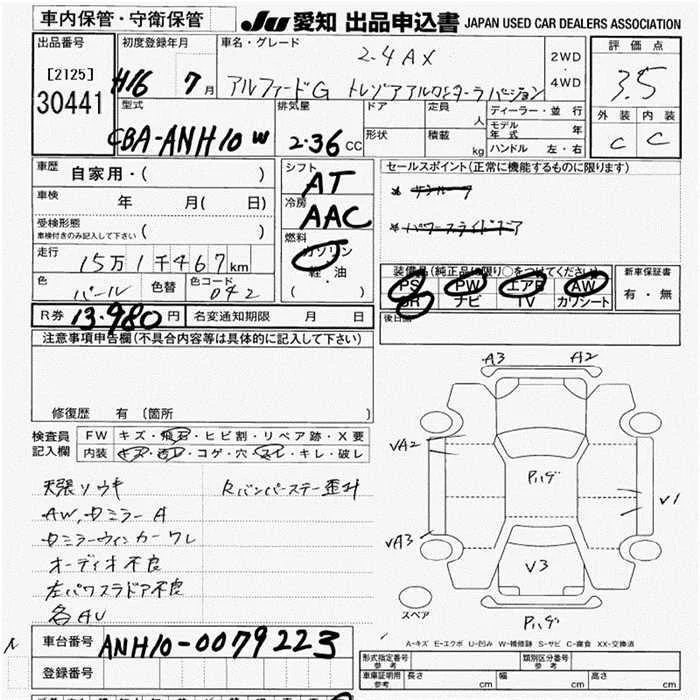 車内保管・守衛保管
JU 愛知 出品申込書 JAPAN USED CAR DEALERS ASSOCIATION
出品番号
[2125]
30441
初度登録年月
H16 7月
車名・グレード
2.4AX
アルファードG トレゾアアルカンターラバージョン
2WD
・
4WD
評価点
3.5
外装 内装
C C
型式
CBA-ANH10W
排気量
2.36 CC
ドア
形状
定員 人
積載 kg
ディーラー・並行
モデル年式 年
ハンドル 左・右
車歴
自家用・( )
車検
年 月( 日)
受検形態
車検付きのみ記入して下さい ( )
走行
15万1千467km
色
パール
色替
色コード
042
シフト
AT
冷房
AAC
燃料
ガソリン
軽・油
( )
セールスポイント(正常に機能するものに限ります)
* サンルーフ
* パワースライドドア
装備品(純正品に限り○をつけてください)
PS PW エアB AW
SR ナビ TV カワシート
新車保証書
有・無
後日
R券 13.980円
名変通知期限 月 日
注意事項申告欄(不具合内容等は具体的に記入して下さい)
修復歴 有(箇所 )
検査員
記入欄
FW キズ・飛石・ヒビ割・リペア跡・X要
内装 キズ・汚レ・コゲ・穴・スレ・キレ・破レ
天張リウキ
Rバンパーステー歪ミ
AW,ドミラーA
ドミラーウィンカーワレ
オーディオ不良
左パワスラドア不良
各AU
A3 A2
VA2
Pハゲ
V1
VA3
V3
スペア
Pハゲ
A-キズ E-エクボ U-凹み W-補修跡 S-サビ C-腐食 XX-交換済
車台番号
ANH10-0079223
登録番号
形式指定番号
参考
類別区分番号
参考
車庫証明用
参考
長さ cm
幅 cm
高さ cm